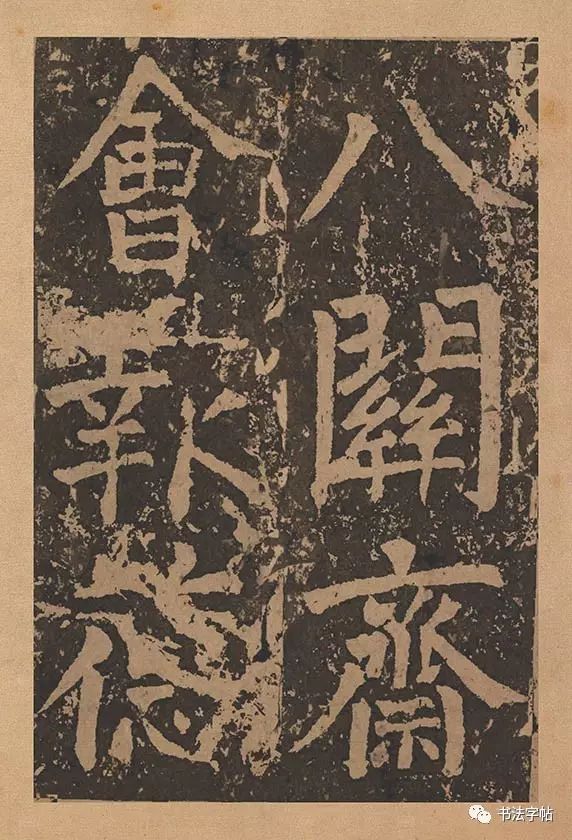 八關齋
會報德
书法字帖